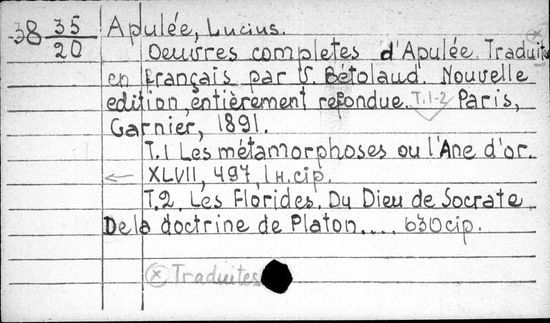 38 35/20 Apulée, Lucius.
Oeuvres completes d'Apulée. Traduits
en français par V. Bétolaud. Nouvelle
edition, entièrement refondue. T.1-2 Paris,
Garnier, 1891.
T.1 Les métamorphoses ou l'Ane d'or.
XLVII, 497, 1 н.стр.
T.2. Les Florides. Du Dieu de Socrate
De la doctrine de Platon.... 630стр.
Traduites